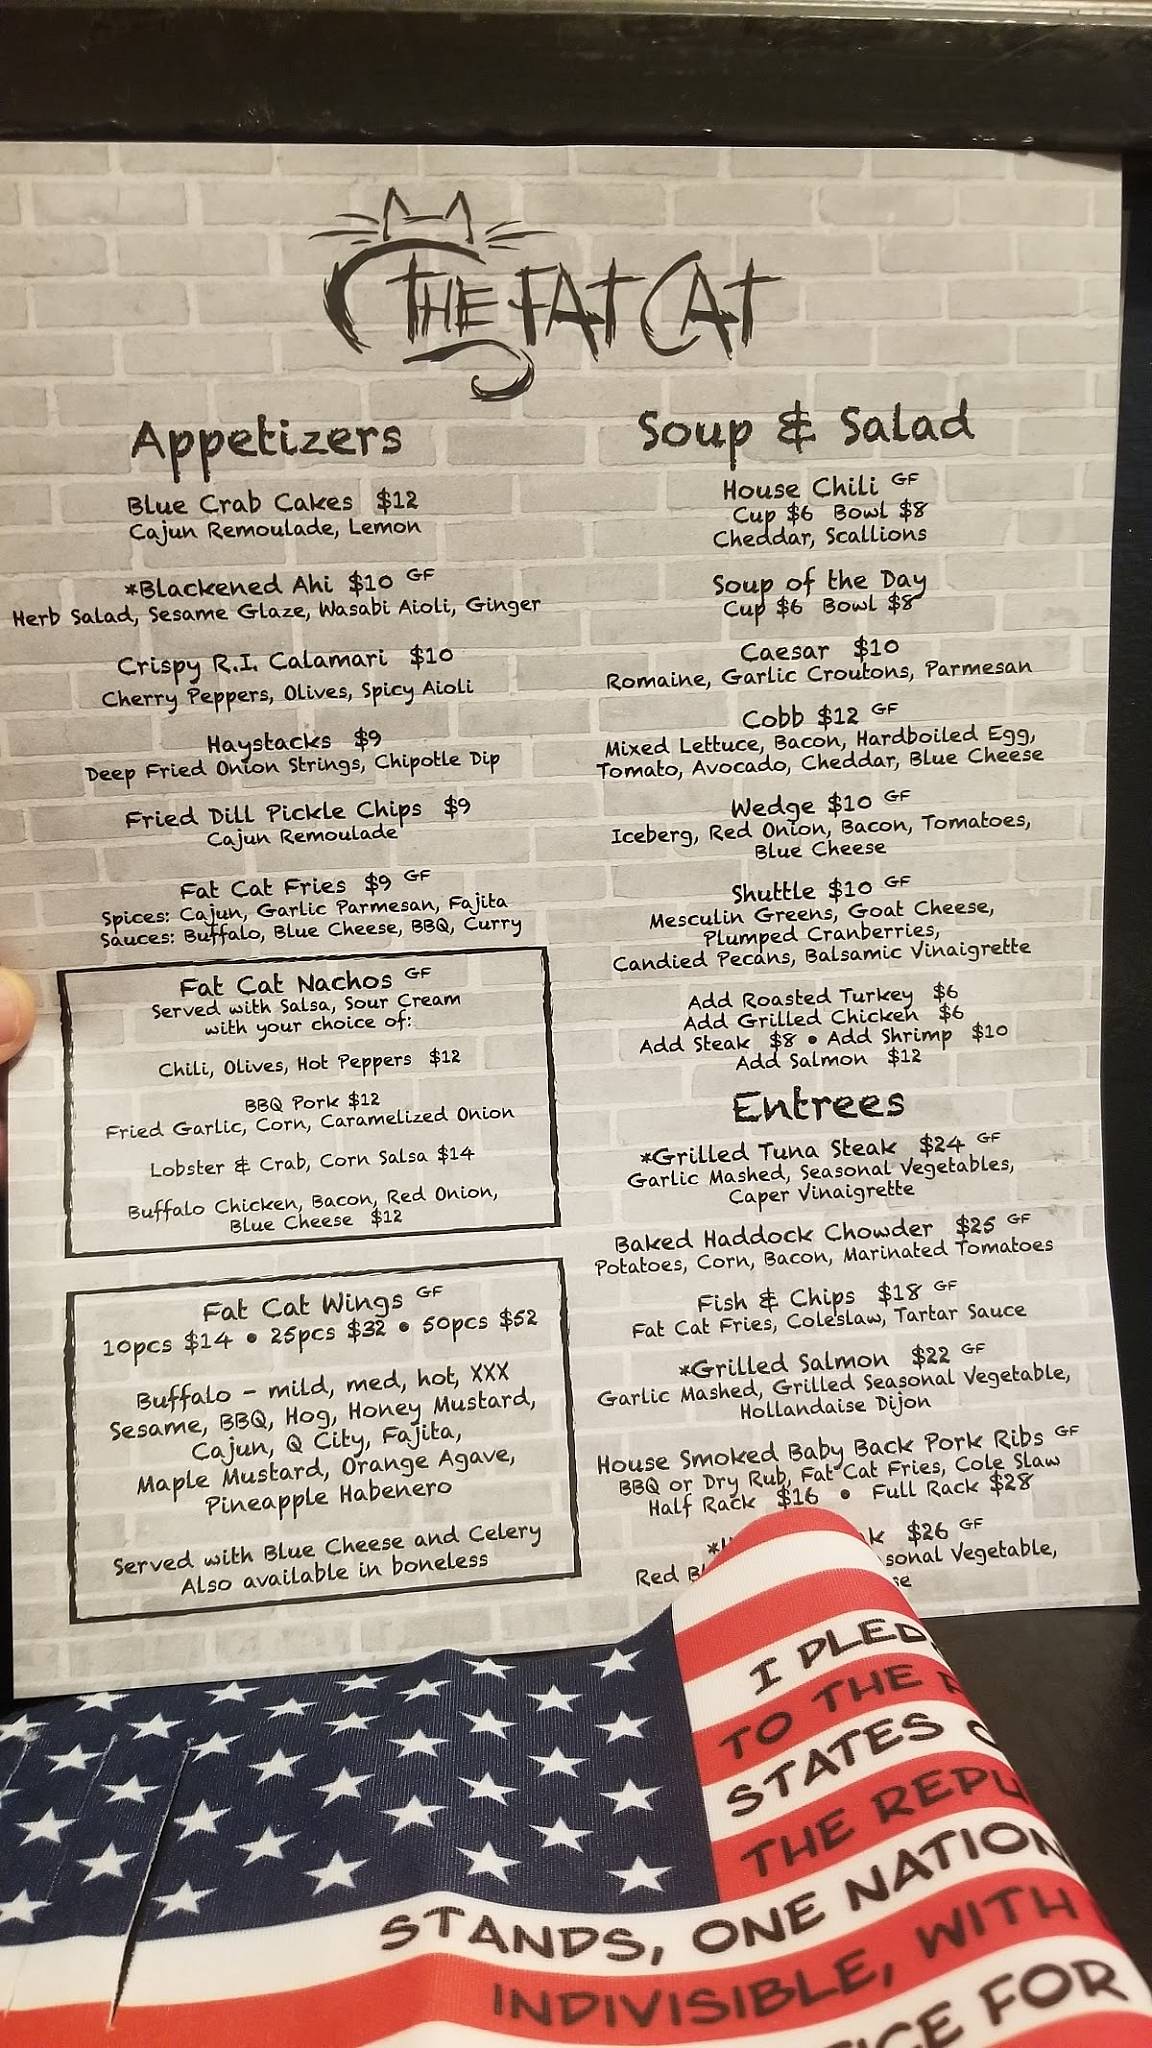 THE FAT CAT
Appetizers
Blue Crab Cakes $12
Cajun Remoulade, Lemon
*Blackened Ahi $10 GF
Herb Salad, Sesame Glaze, Wasabi Aioli, Ginger
Crispy R.I. Calamari $10
Cherry Peppers, Olives, Spicy Aioli
Haystacks $9
Deep Fried Onion Strings, Chipotle Dip
Fried Dill Pickle Chips $9
Cajun Remoulade
Fat Cat Fries $9 GF
Spices: Cajun, Garlic Parmesan, Fajita
Sauces: Buffalo, Blue Cheese, BBQ, Curry
Fat Cat Nachos GF
Served with Salsa, Sour Cream
with your choice of:
Chili, Olives, Hot Peppers $12
BBQ Pork $12
Fried Garlic, Corn, Caramelized Onion
Lobster & Crab, Corn Salsa $14
Buffalo Chicken, Bacon, Red Onion,
Blue Cheese $12
Fat Cat Wings GF
10pcs $14 • 25pcs $32 • 50pcs $52
Buffalo - mild, med, hot, XXX
Sesame, BBQ, Hog, Honey Mustard,
Cajun, Q City, Fajita,
Maple Mustard, Orange Agave,
Pineapple Habenero
Served with Blue Cheese and Celery
Also available in boneless
Soup & Salad
House Chili GF
Cup $6 Bowl $8
Cheddar, Scallions
Soup of the Day
Cup $6 Bowl $8
Caesar $10
Romaine, Garlic Croutons, Parmesan
Cobb $12 GF
Mixed Lettuce, Bacon, Hardboiled Egg,
Tomato, Avocado, Cheddar, Blue Cheese
Wedge $10 GF
Iceberg, Red Onion, Bacon, Tomatoes,
Blue Cheese
Shuttle $10 GF
Mesculin Greens, Goat Cheese,
Plumped Cranberries,
Candied Pecans, Balsamic Vinaigrette
Add Roasted Turkey $6
Add Grilled Chicken $6
Add Steak $8 • Add Shrimp $10
Add Salmon $12
Entrees
*Grilled Tuna Steak $24 GF
Garlic Mashed, Seasonal Vegetables,
Caper Vinaigrette
Baked Haddock Chowder $25 GF
Potatoes, Corn, Bacon, Marinated Tomatoes
Fish & Chips $18 GF
Fat Cat Fries, Coleslaw, Tartar Sauce
*Grilled Salmon $22 GF
Garlic Mashed, Grilled Seasonal Vegetable,
Hollandaise Dijon
House Smoked Baby Back Pork Ribs GF
BBQ or Dry Rub, Fat Cat Fries, Cole Slaw
Half Rack $16 • Full Rack $28
$26 GF
Red Vegetable,
I PLED
TO THE
STATES
THE REPU
STANDS, ONE NATION
INDIVISIBLE, WITH
FOR